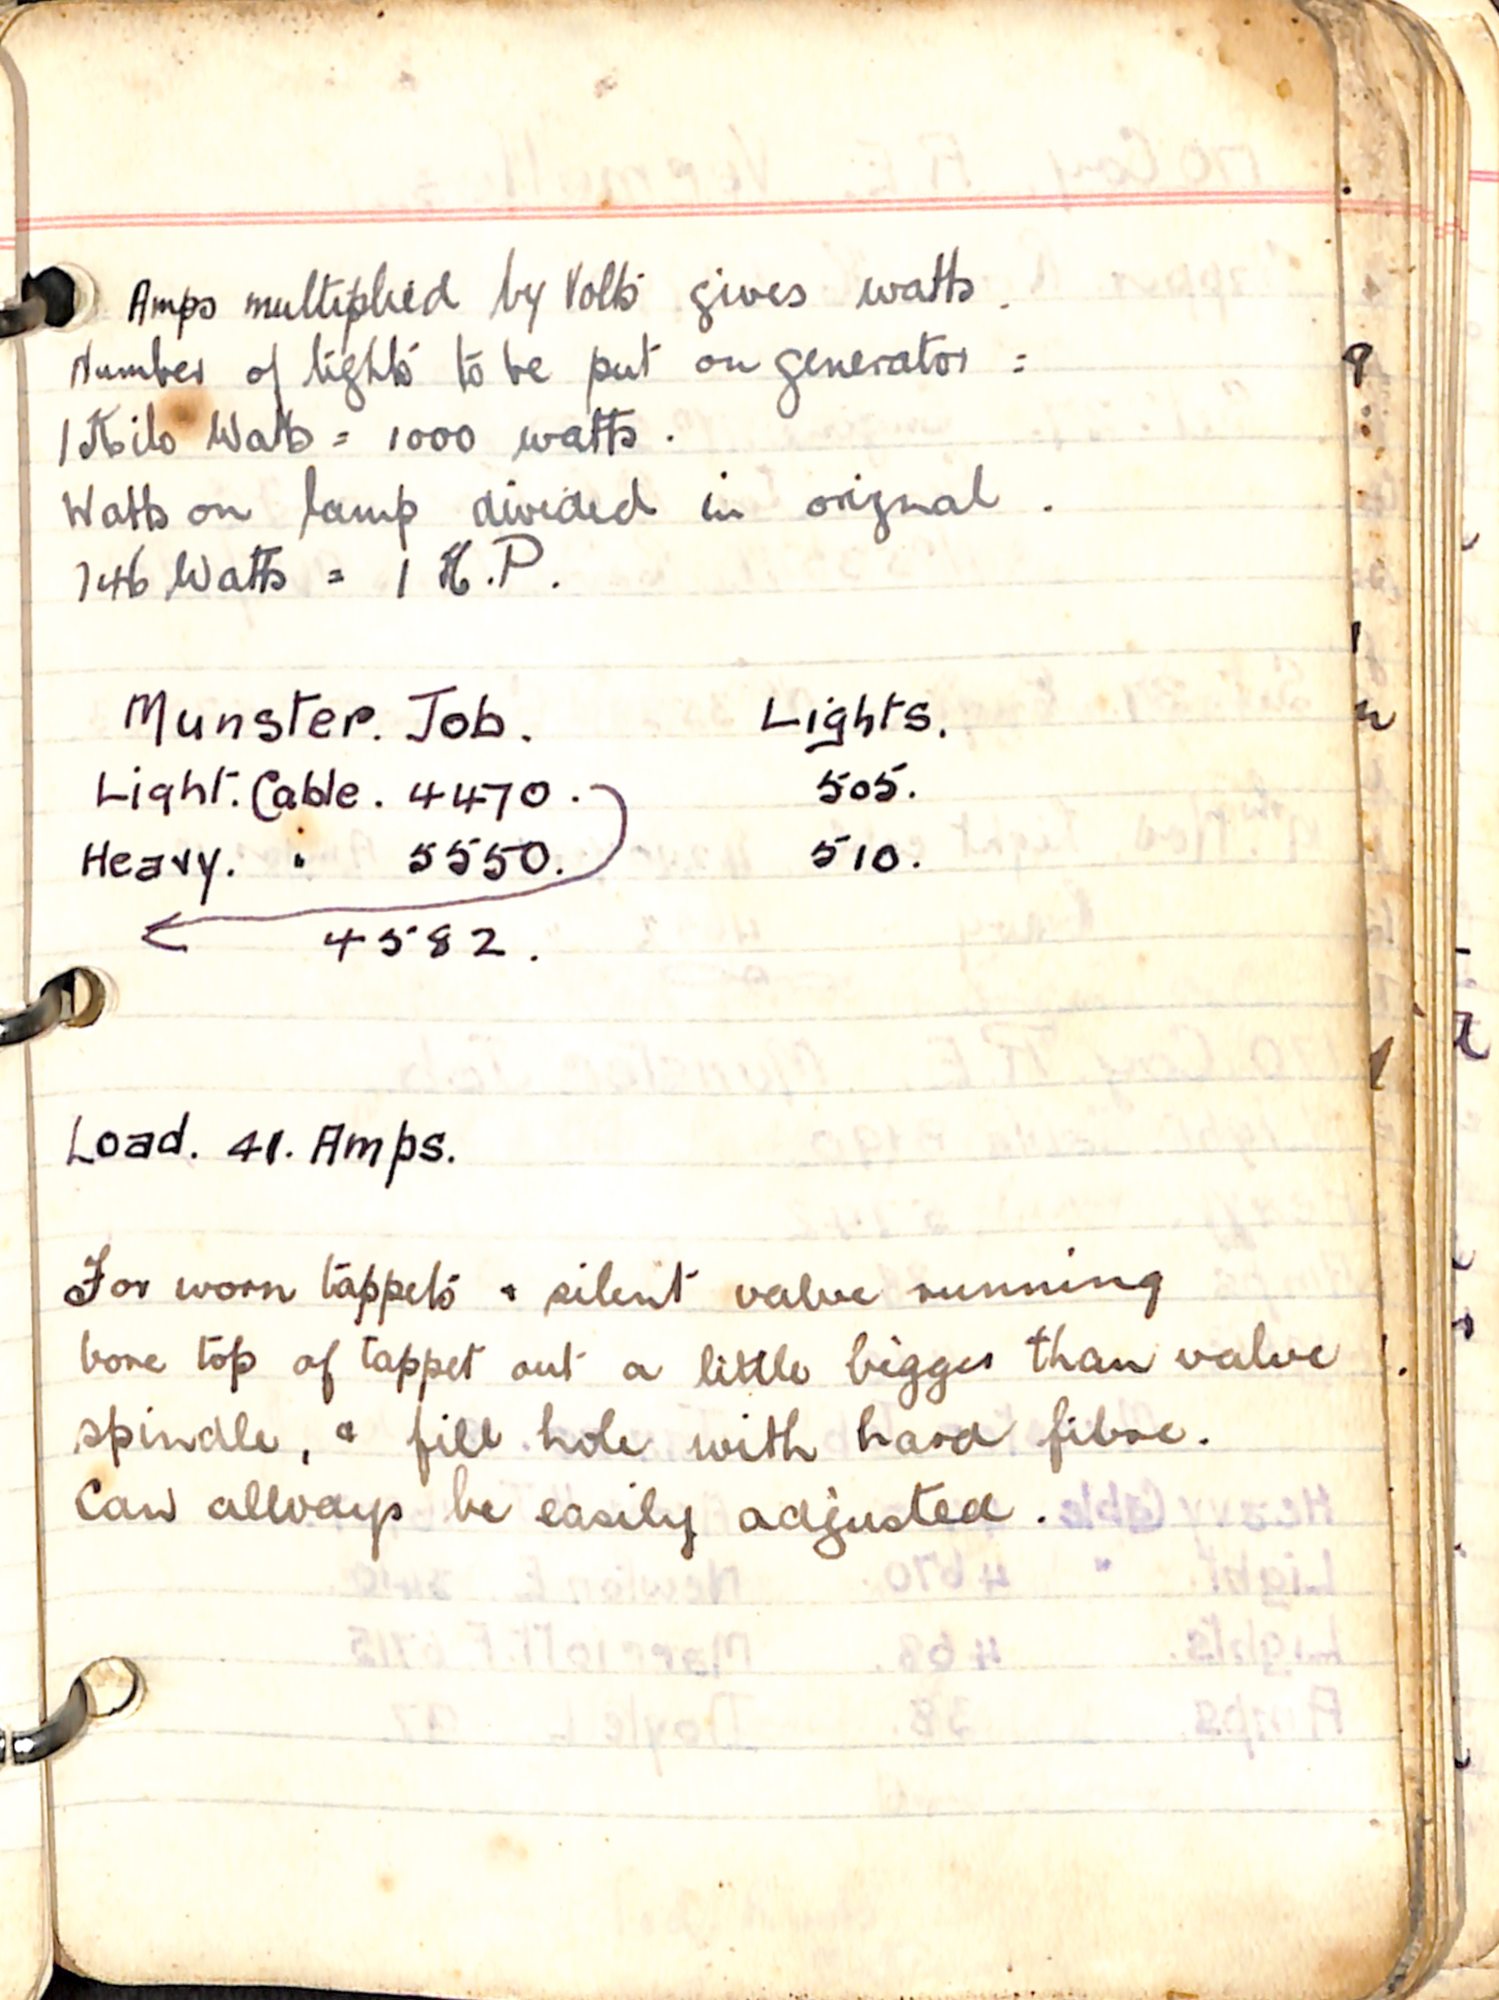 Amps multiplied by Volts gives watts.
Number of lights to be put on generator =
1 Kilo Watts = 1000 watts.
Watts on lamp divided in orignal.
746 Watts = 1 H.P.
Munster. Job. Lights.
Light. Cable. 4470. 505.
Heavy. " 5550. 510.
4582.
Load. 41. Amps.
For worn tappets & silent valve running
bore top of tappet out a little bigger than valve
spindle, & fill hole with hard fibre.
Can allways be easily adjusted.